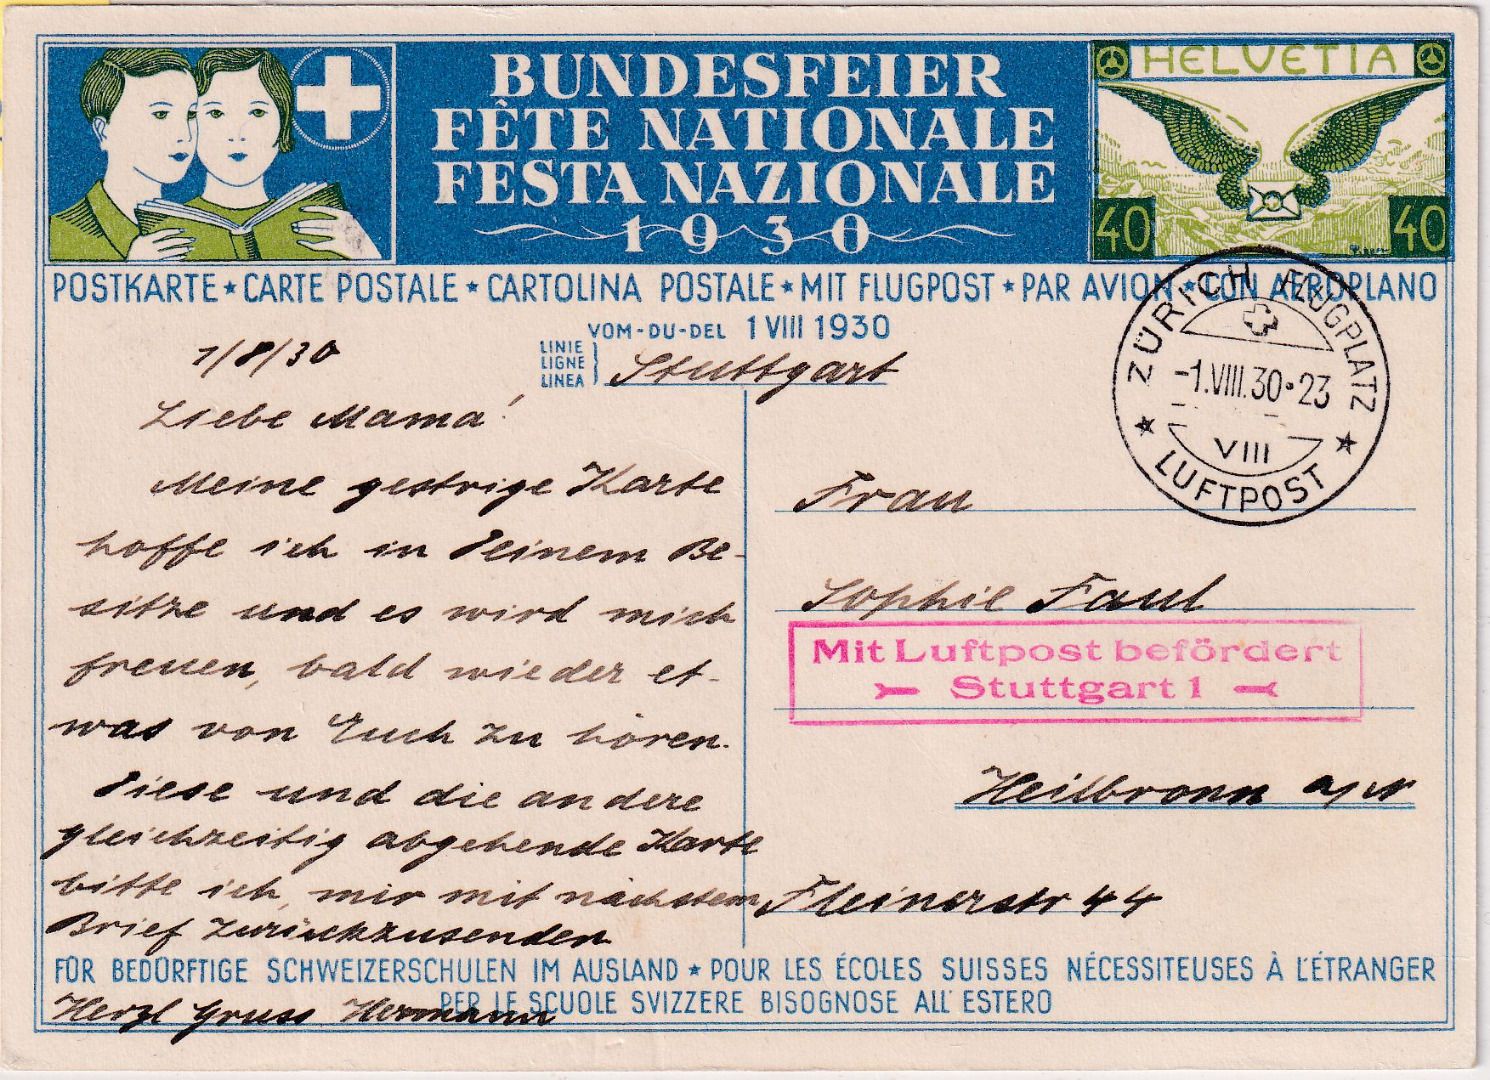 BUNDESFEIER
FÊTE NATIONALE
FESTA NAZIONALE
1930
HELVETIA
40 40
POSTKARTE ★ CARTE POSTALE ★ CARTOLINA POSTALE ★ MIT FLUGPOST ★ PAR AVION ★ CON AEROPLANO
VOM-DU-DEL 1 VIII 1930
LINIE
LIGNE
LINEA
Stuttgart
ZÜRICH FLUGPLATZ
-1.VIII.30•23
VIII
★ LUFTPOST ★
1/8/30
Liebe Mama!
Meine gestrige Karte
hoffe ich in Deinem Be-
sitze und es wird mich
freuen, bald wieder et-
was von Euch zu hören.
Diese und die andere
gleichzeitig abgehende Karte
bitte ich, mir mit nächstem
Brief zurückzusenden
Herzl Gruss Hermann
Frau
Sophie Faul
Mit Luftpost befördert
Stuttgart 1
Heilbronn a/N
Fleinerstr 44
FÜR BEDÜRFTIGE SCHWEIZERSCHULEN IM AUSLAND ★ POUR LES ÉCOLES SUISSES NÉCESSITEUSES À L'ÉTRANGER
PER LE SCUOLE SVIZZERE BISOGNOSE ALL' ESTERO